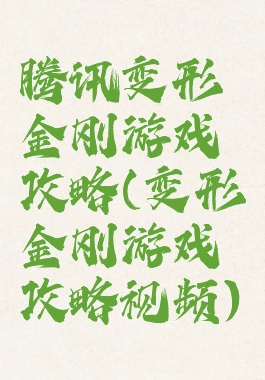 腾讯变形
金刚游戏
攻略(变形
金刚游戏
攻略视频)